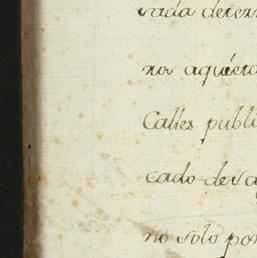 sada deter
nos aquiera
Calles publi
cado de va
no solo por